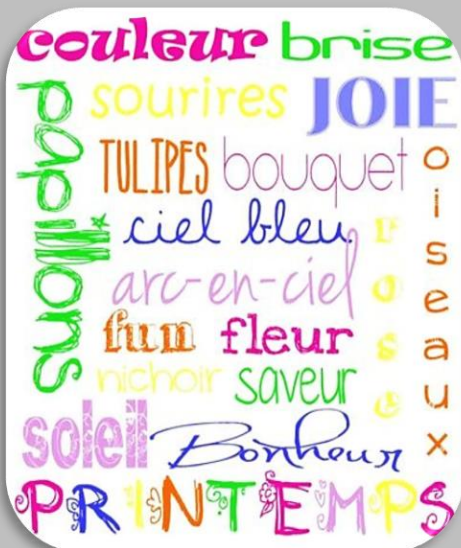 couleur brise
papillons
sourires JOIE
TULIPES bouquet
oiseaux
ciel bleu
rose
arc-en-ciel
fun fleur
nichoir saveur
soleil Bonheur
PRINTEMPS